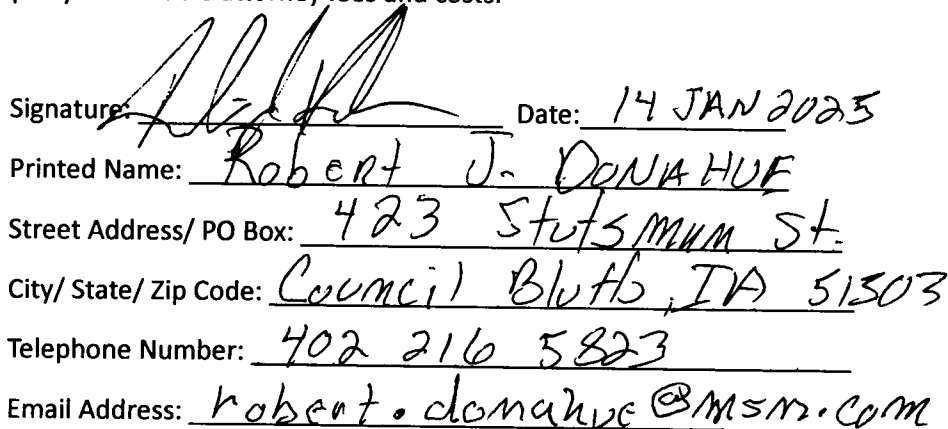 attorney fees and costs.
Signature: Date: 14 JAN 2025
Printed Name: Robert J. DONAHUE
Street Address/ PO Box: 423 Stutsman St.
City/ State/ Zip Code: Council Bluffs, IA 51503
Telephone Number: 402 216 5823
Email Address: robert.donahue@msn.com